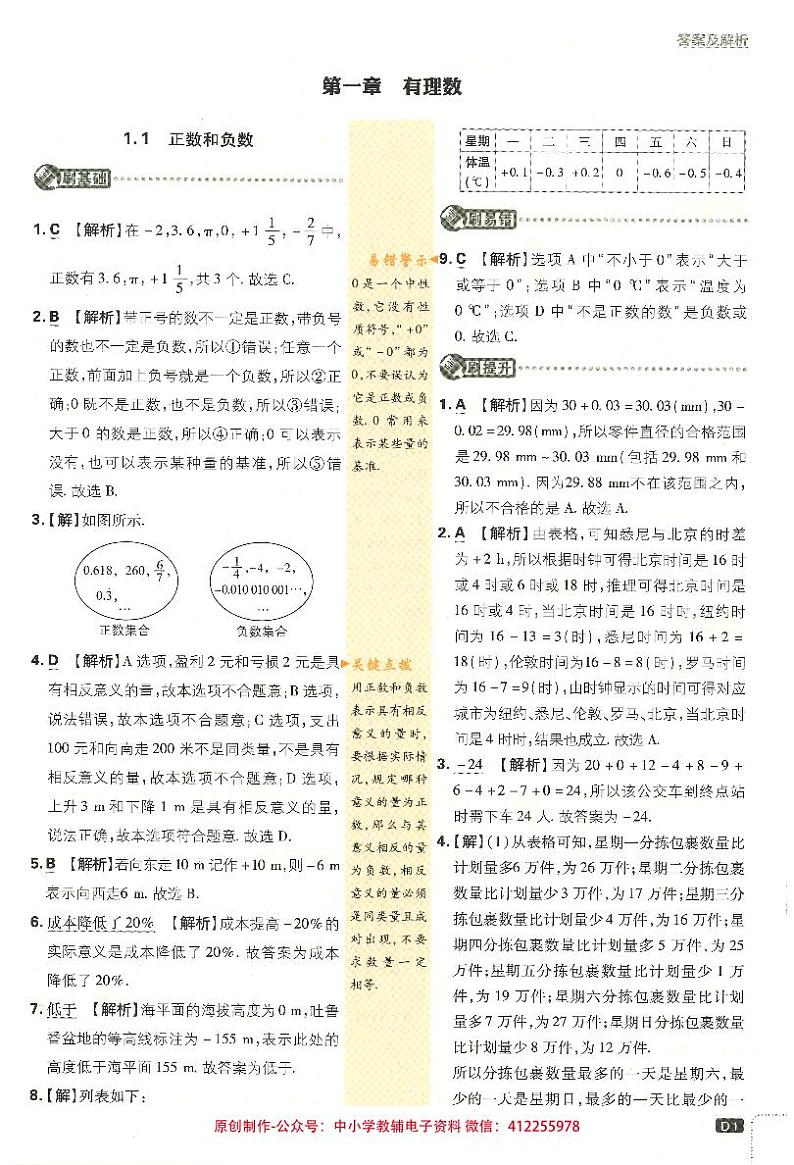 答案及解析
第一章 有理数
1.1 正数和负数
刷基础
1. C 【解析】在-2,3.6,π,0,+1 1/5,-2/7中,
正数有3.6,π,+1 1/5,共3个.故选C.
2. B 【解析】带正号的数不一定是正数,带负号
的数也不一定是负数,所以①错误;任意一个
正数,前面加上负号就是一个负数,所以②正
确;0既不是正数,也不是负数,所以③错误;
大于0的数是正数,所以④正确;0可以表示
没有,也可以表示某种量的基准,所以⑤错
误.故选B.
3.【解】如图所示.
0.618, 260, 6/7,
0.3,
…
正数集合
-1/4,-4, -2,
-0.010 010 001…,
…
负数集合
4. D 【解析】A选项,盈利2元和亏损2元是具
有相反意义的量,故本选项不合题意;B选项,
说法错误,故本选项不合题意;C选项,支出
100元和向南走200米不是同类量,不是具有
相反意义的量,故本选项不合题意;D选项,
上升3 m和下降1 m是具有相反意义的量,
说法正确,故本选项符合题意.故选D.
5. B 【解析】若向东走10 m记作+10 m,则-6 m
表示向西走6 m.故选B.
6. 成本降低了20% 【解析】成本提高-20%的
实际意义是成本降低了20%.故答案为成本
降低了20%.
7. 低于 【解析】海平面的海拔高度为0 m,吐鲁
番盆地的等高线标注为-155 m,表示此处的
高度低于海平面155 m.故答案为低于.
8.【解】列表如下:
易错警示
0是一个中性
数,它没有性
质符号,“+0”
或“-0”都为
0,不要误认为
它是正数或负
数.0常用来
表示某些量的
基准.
关键点拨
用正数和负数
表示具有相反
意义的量时,
要根据实际情
况,规定哪种
意义的量为正
数,那么与其
意义相反的量
为负数,相反
意义的量必须
是同类量且成
对出现,不要
求数量一定
相等.
星期 一 二 三 四 五 六 日
体温(℃) +0.1 -0.3 +0.2 0 -0.6 -0.5 -0.4
刷易错
9. C 【解析】选项A中“不小于0”表示“大于
或等于0”;选项B中“0 ℃”表示“温度为
0 ℃”;选项D中“不是正数的数”是负数或
0.故选C.
刷提升
1. A 【解析】因为30+0.03=30.03(mm),30-
0.02=29.98(mm),所以零件直径的合格范围
是29.98 mm~30.03 mm(包括29.98 mm和
30.03 mm).因为29.88 mm不在该范围之内,
所以不合格的是A.故选A.
2. A 【解析】由表格,可知悉尼与北京的时差
为+2 h,所以根据时钟可得北京时间是16时
或4时或6时或18时,推理可得北京时间是
16时或4时,当北京时间是16时时,纽约时
间为16-13=3(时),悉尼时间为16+2=
18(时),伦敦时间为16-8=8(时),罗马时间
为16-7=9(时),由时钟显示的时间可得对应
城市为纽约、悉尼、伦敦、罗马、北京,当北京时
间是4时时,结果也成立.故选A.
3. -24 【解析】因为20+0+12-4+8-9+
6-4+2-7+0=24,所以该公交车到终点站
时需下车24人.故答案为-24.
4.【解】(1)从表格可知,星期一分拣包裹数量比
计划量多6万件,为26万件;星期二分拣包裹
数量比计划量少3万件,为17万件;星期三分
拣包裹数量比计划量少4万件,为16万件;星
期四分拣包裹数量比计划量多5万件,为25
万件;星期五分拣包裹数量比计划量少1万
件,为19万件;星期六分拣包裹数量比计划
量多7万件,为27万件;星期日分拣包裹数量
比计划量少8万件,为12万件.
所以分拣包裹数量最多的一天是星期六,最
少的一天是星期日,最多的一天比最少的一
D1
原创制作-公众号:中小学教辅电子资料 微信:412255978